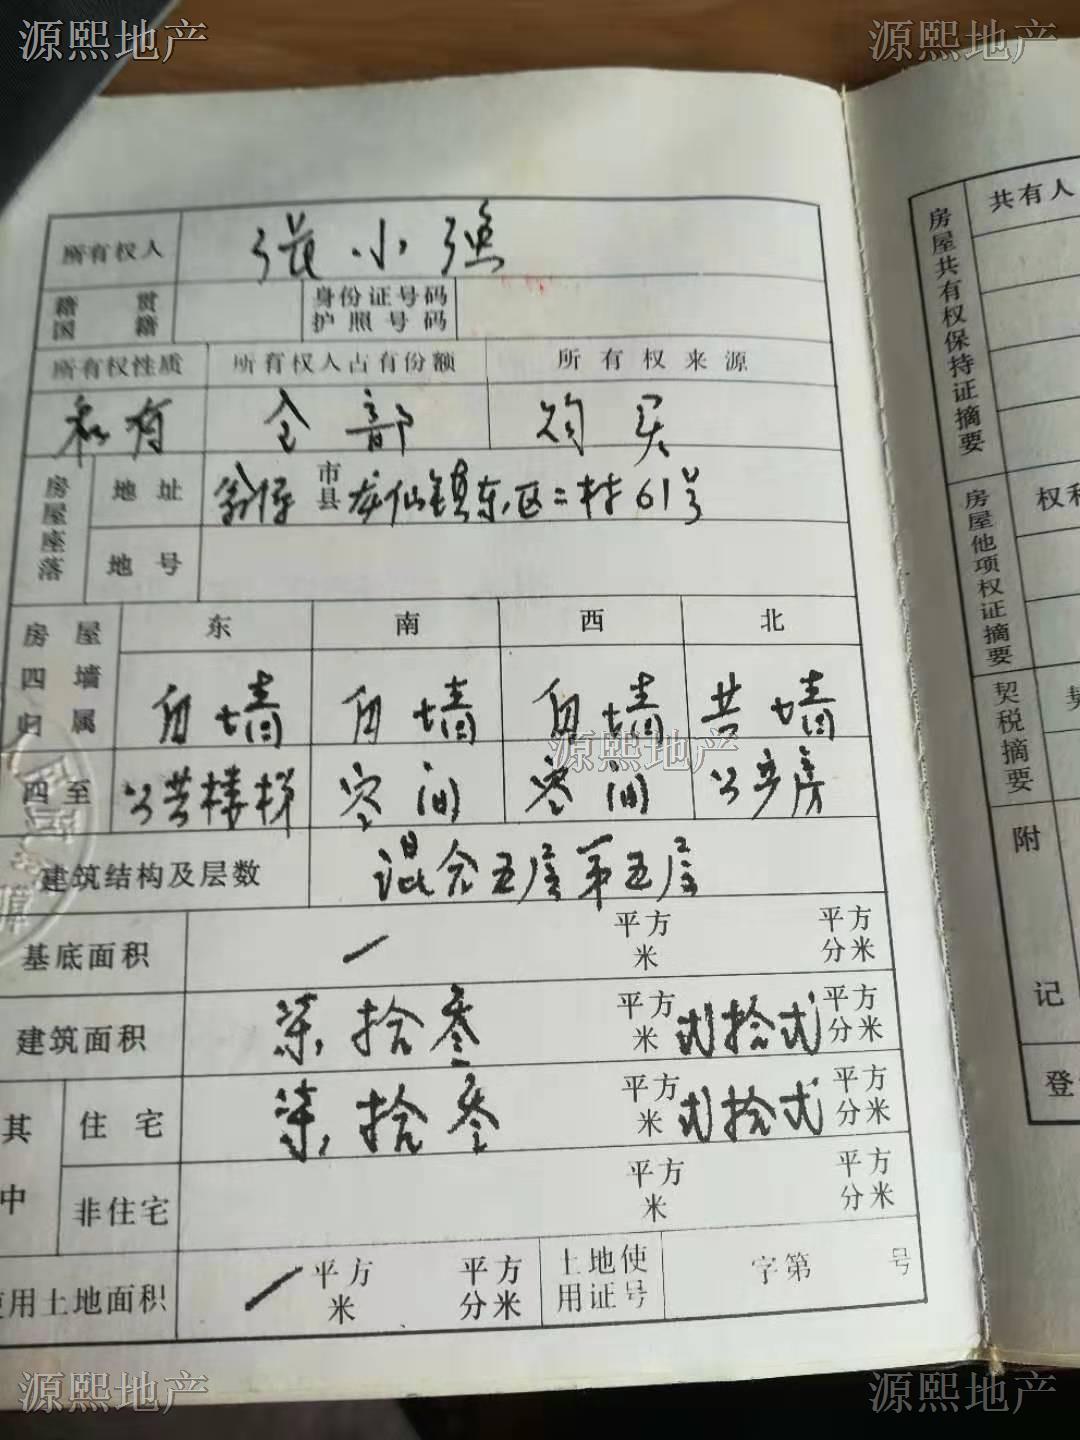 源熙地产 源熙地产
所有权人 张小强
籍贯 国籍 身份证号码 护照号码
所有权性质 所有权人占有份额 所有权来源
私有 全部 购买
房屋座落 地址 翁源 市县 龙仙镇东区二村61号
地号
房屋四墙归属 东 南 西 北
自墙 自墙 自墙 共墙
源熙地产
四至 公共楼梯 空间 空间
建筑结构及层数 混合五层第五层
基底面积 / 平方米 平方分米
建筑面积 柒拾叁 平方米 贰拾贰 平方分米
其中 住宅 柒拾叁 平方米 贰拾贰 平方分米
非住宅 平方米 平方分米
使用土地面积 / 平方米 平方分米 土地使用证号 字第 号
房屋共有权保持证摘要 共有人
房屋他项权证摘要 权利
契税摘要 契
附
记
登
源熙地产 源熙地产